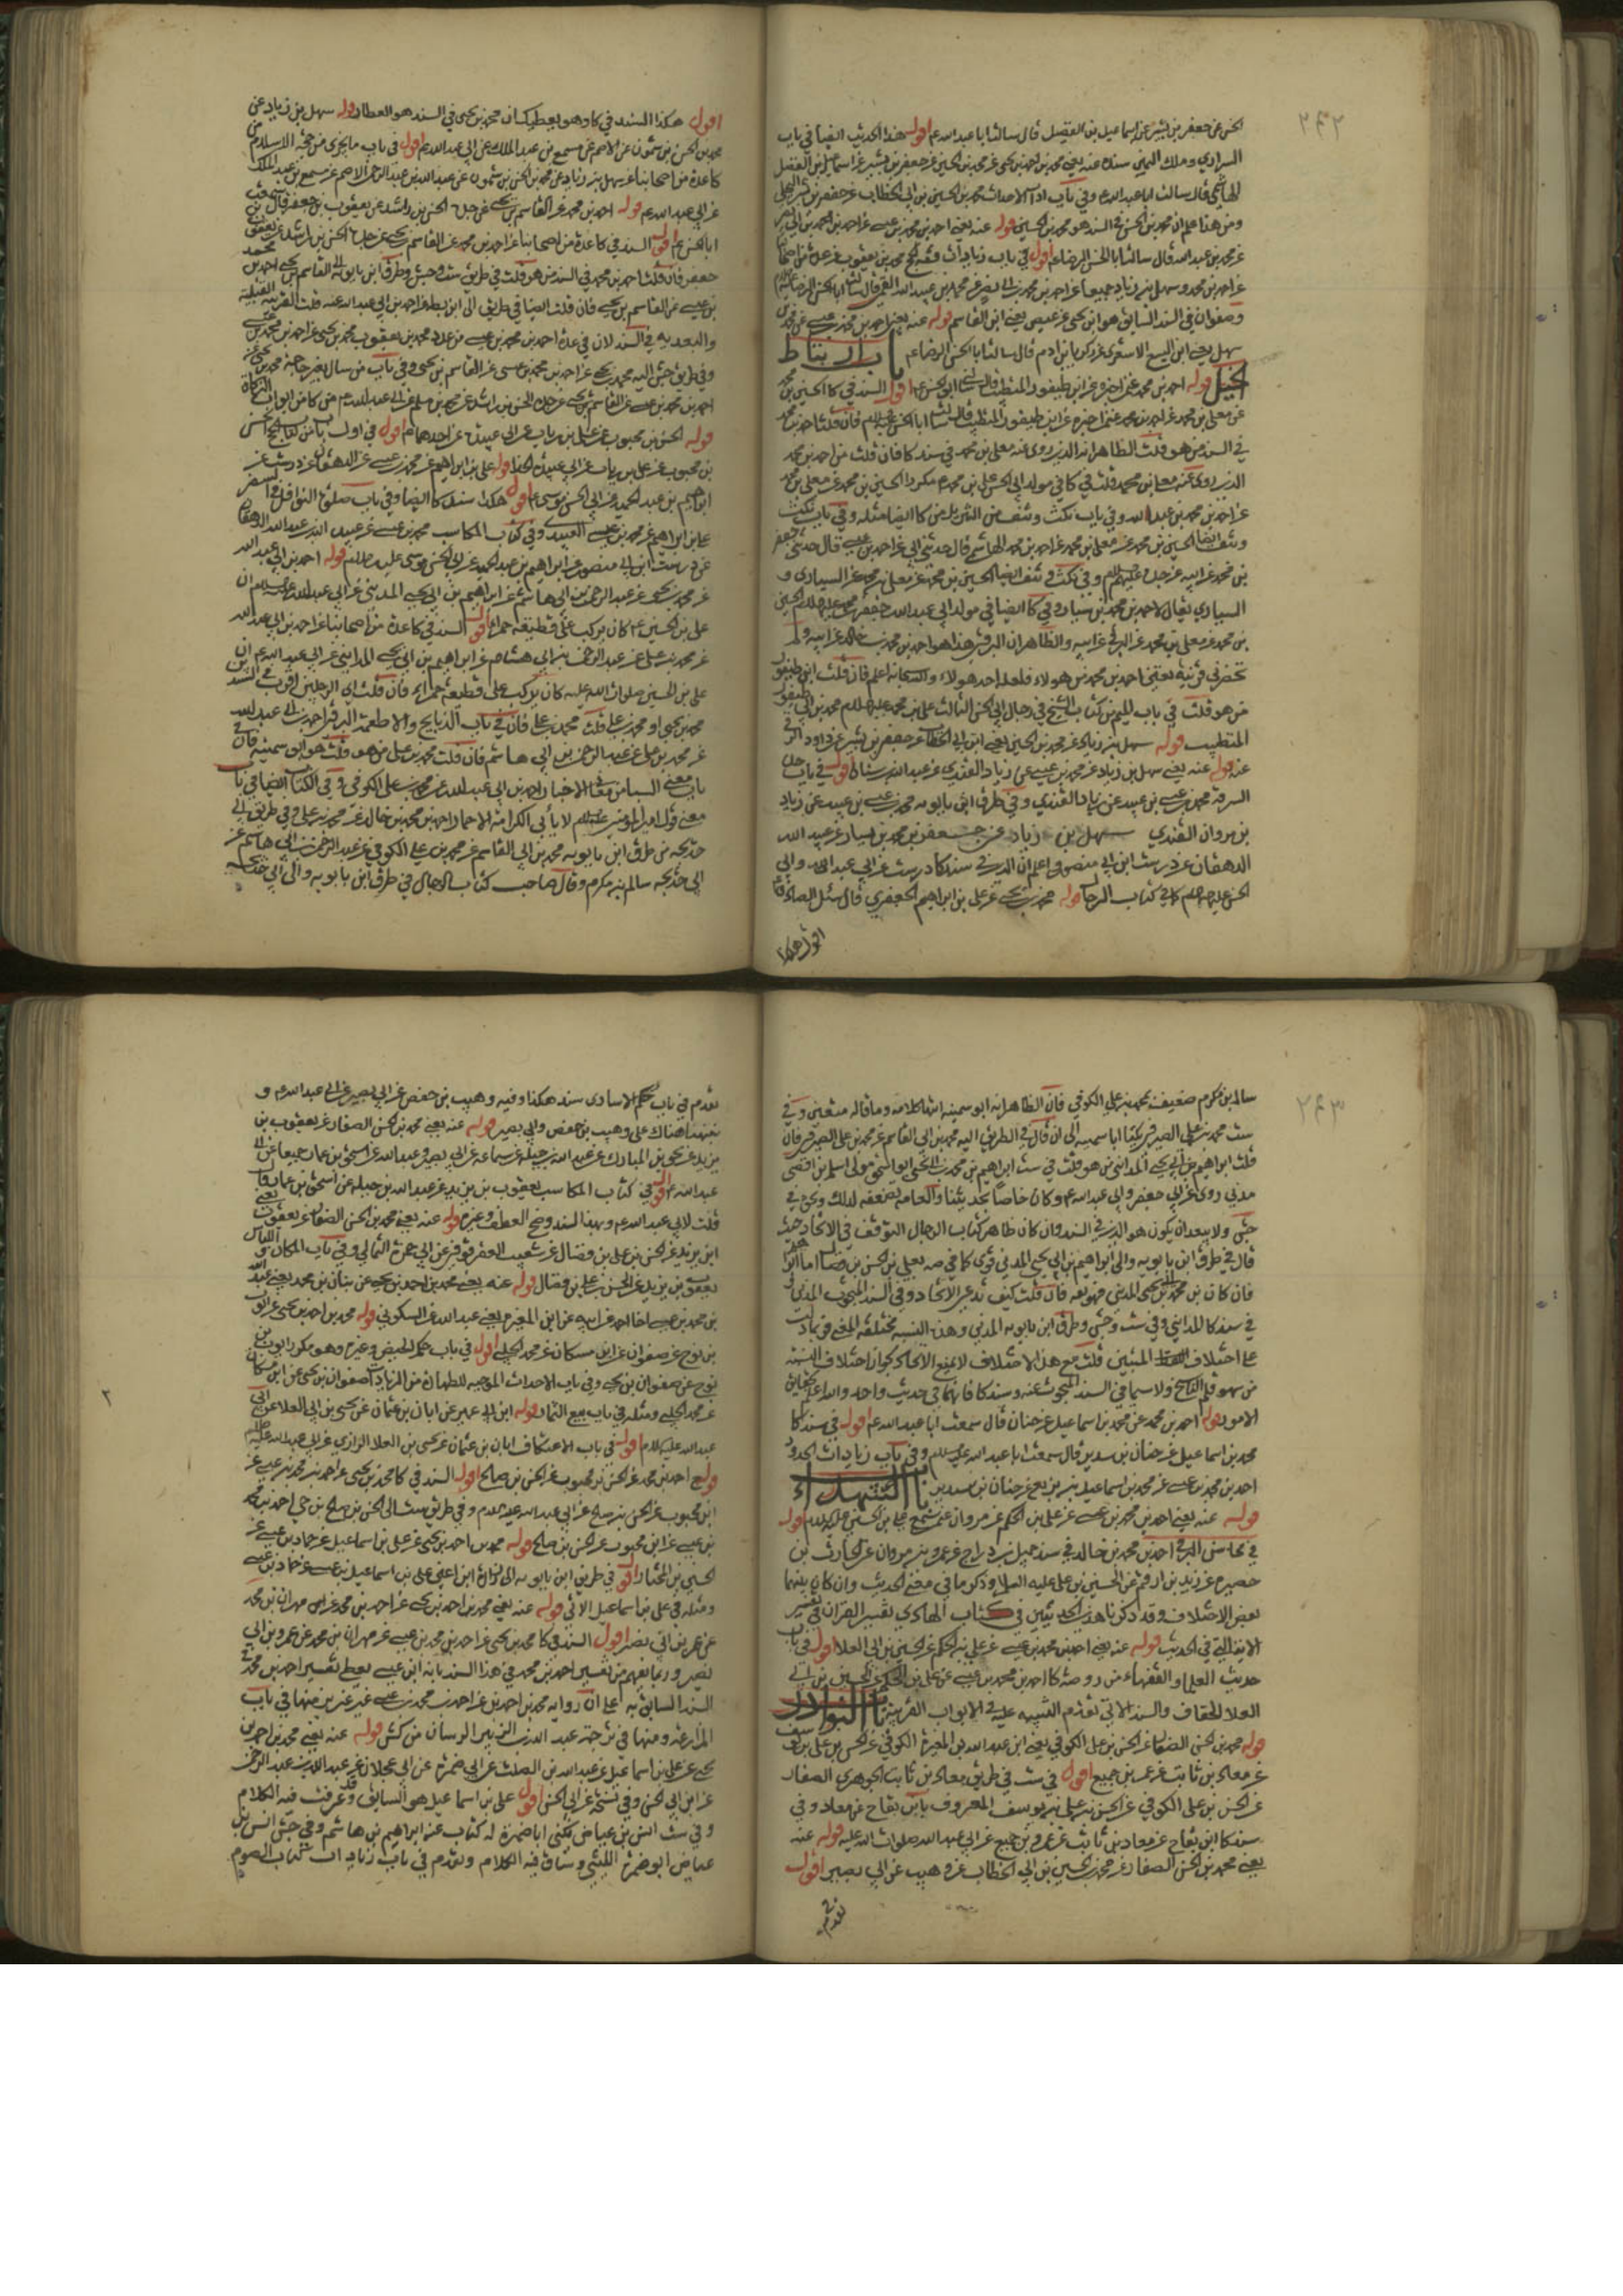 ٢٤٢
الحسن عن جعفر بن بشير عن اسماعيل بن الفضيل قال سالت ابا عبد الله ع اقول هذا الحديث ايضا في باب
السراري وملك اليمين سنده عنه يعني محمد بن احمد بن يحيى عن محمد بن الحسين عن جعفر بن بشير عن اسماعيل بن الفضل
الهاشمي قال سالت ابا عبد الله ع وفي باب محمد بن الحسين بن ابي الخطاب عن جعفر بن بشير البجلي
ومن هنا علم ان محمد بن الحسن في السند هو محمد بن الحسين قوله عنه يعني احمد بن محمد بن عيسى عن احمد بن محمد بن ابي نصر
عن محمد بن عبد الله قال سالت ابا الحسن الرضا ع اقول في باب زيادات فقه الحج محمد بن يعقوب عن عدة من اصحابنا
عن احمد بن محمد وسهل بن زياد جميعا عن احمد بن محمد بن ابي نصر عن محمد بن عبيد الله القمي قال سالت ابا الحسن الرضا
وصفوان في السند السابق هو ابن يحيى عن عيص يعني ابن القاسم قوله عنه يعني احمد بن محمد بن عيسى عن محمد بن
سهل يعني ابن اليسع الاشعري عن زكريا بن ادم قال سالت ابا الحسن الرضا ع باب ارتباط
الخيل قوله احمد بن محمد عمن اخبره عن ابن طيفور المتطبب قال سالني ابو الحسن ع اقول السند في كا الحسين بن محمد
عن معلى بن محمد عن احمد بن محمد عمن اخبره عن ابن طيفور المتطبب قال سالني ابا الحسن فان قلت احمد بن محمد
في السند من هو قلت الظاهر انه الذي روى عنه معلى بن محمد في سند كا فان قلت من احمد بن محمد
الذي روى عنه معلى بن محمد قلت في كا في مولد ابي الحسن علي بن محمد ع مكررا الحسين بن محمد عن معلى بن محمد
عن احمد بن محمد بن عبد الله وفي باب نكت ونتف من التنزيل من كا ايضا مثله وفي باب نكت
ونتف ايضا الحسين بن محمد عن معلى بن محمد عن احمد بن محمد الهاشمي قال حدثني ابي عن احمد بن عيسى قال حدثني جعفر
بن محمد عن ابيه عن جده وفي نكت ونتف ايضا الحسين بن محمد عن معلى بن محمد عن السياري و
السياري يقال لاحمد بن محمد بن سيار وفي كا ايضا في مولد ابي عبد الله جعفر بن محمد الحسين
بن محمد عن معلى بن محمد عن البرقي عن ابيه والظاهر ان البرقي هذا هو احمد بن محمد بن خالد عن ابيه ولم
تحضرني قرينة تعيّن احمد بن محمد من هؤلاء فلعله احد هولاء والله سبحانه اعلم فان قلت ابن طيفور
من هو قلت في باب الميم من كتاب الشيخ في رجال ابي الحسن الثالث علي بن محمد عليهما السلام محمد بن ابي طيفور
المتطبب قوله سهل بن زياد عن محمد بن الحسين يعني ابن ابي الخطاب عن جعفر بن بشير عن داود الرقي
عنه قوله عنه يعني سهل بن زياد عن محمد بن عيسى عن زياد القندي عن عبد الله بن سنان اقول في باب حد
السرقة محمد بن عيسى بن عبيد عن زياد القندي وفي طرق ابن بابويه محمد بن عيسى بن عبيد عن زياد
بن مروان القندي سهل بن زياد عن جعفر بن محمد بن بشار عن عبيد الله
الدهقان عن درست ابن ابي منصور واعلم ان الذي في سند كا درست عن ابي عبد الله وابي
الحسن عليهما السلام كما في كتاب الرجال قوله محمد بن يحيى عن علي بن ابراهيم الجعفري قال سئل الصادق ع
اقول هكذا
اقول هكذا السند في كا وهو يعطيك ان محمد بن يحيى في السند هو العطار قوله سهل بن زياد عن
محمد بن الحسن بن شمون عن الاصم عن مسمع بن عبد الملك عن ابي عبد الله ع اقول في باب ما يجزي من حجة الاسلام من
كا عدة من اصحابنا عن سهل بن زياد عن محمد بن الحسن بن شمون عن عبد الله بن عبد الرحمن الاصم عن مسمع بن عبد الملك
عن ابي عبد الله ع قوله احمد بن محمد عن القاسم بن يحيى عن جده الحسن بن راشد عن يعقوب بن جعفر قال سمعت
ابا الحسن ع اقول السند في كا عدة من اصحابنا عن احمد بن محمد عن القاسم بن يحيى عن جده الحسن بن راشد عن يعقوب بن
جعفر فان قلت احمد بن محمد في السند من هو قلت في طريق ست وجش وطرق ابن بابويه الى القاسم بن يحيى احمد بن محمد
بن عيسى عن القاسم بن يحيى فان قلت ايضا في طريق الى ابن بطة عن احمد بن ابي عبد الله عنه قلت القرينة القبلية
والبعدية في السند لان في عدة احمد بن محمد بن عيسى من عدد محمد بن يعقوب محمد بن يحيى عن احمد بن محمد بن عيسى
وفي طريق جش اليه محمد بن يحيى عن احمد بن محمد بن عيسى عن القاسم بن يحيى وفي باب من سال بغير حاجة محمد بن يحيى عن
احمد بن محمد بن عيسى عن القاسم بن يحيى عن جده الحسن بن راشد عن محمد بن مسلم عن ابي عبد الله ع من كا من ابواب الزكاة
قوله الحسن بن محبوب عن علي بن رياب عن ابي عبيدة عن احدهما ع اقول في اول باب من كتاب الحج الحسن
بن محبوب عن علي بن رياب عن ابي عبيدة الحذاء قوله علي بن ابراهيم عن محمد بن عيسى عن الدهقان عن درست عن
ابراهيم بن عبد الحميد عن ابي الحسن موسى ع اقول هكذا سند كا ايضا وفي باب صلوة النوافل في السفر
علي بن ابراهيم عن محمد بن عيسى العبيدي وفي كتاب المكاسب محمد بن عيسى عن عبيد الله بن عبد الله الدهقان
عن درست ابن ابي منصور عن ابراهيم بن عبد الحميد عن ابي الحسن موسى عليه السلام قوله احمد بن ابي عبد الله
عن محمد بن يحيى عن عبد الرحمن بن ابي هاشم عن ابراهيم بن ابي يحيى المدايني عن ابي عبد الله ان
علي بن الحسين ع كان يركب على قطيفة حمراء اقول السند في كا عدة من اصحابنا عن احمد بن ابي عبد الله
عن محمد بن علي عن عبد الرحمن بن ابي هاشم عن ابراهيم بن ابي يحيى المدايني عن ابي عبد الله ع ان
علي بن الحسين صلوات الله عليه كان يركب على قطيفة حمراء فان قلت اي الرجلين اقرب في السند
محمد بن يحيى او محمد بن علي قلت محمد بن علي فان في باب الذبايح والاطعمة البرقي احمد بن ابي عبد الله
عن محمد بن علي عن عبد الرحمن بن ابي هاشم فان قلت محمد بن علي من هو قلت هو ابو سمينة فان في
باب معنى السبا من معاني الاخبار احمد بن ابي عبد الله عن محمد بن علي الكوفي وفي الكتاب ايضا في باب
معنى قول امير المؤمنين لا يأبى الكرامة الا حمار احمد بن محمد بن خالد عن محمد بن علي وفي طريق ابي
خديجة من طرق ابن بابويه محمد بن ابي القاسم عن محمد بن علي الكوفي عن عبد الرحمن بن ابي هاشم عن
ابي خديجة سالم بن مكرم وقال صاحب كتاب الرجال في طرق ابن بابويه والى ابي خديجة
٢٤٣
سالم بن مكرم ضعيف بمحمد بن علي الكوفي فان الظاهر انه ابو سمينة انتهى كلامه وما قاله متعين وفي
ست محمد بن علي الصيرفي يكنى ابا سمينة الى ان قال وفي الطريق اليه محمد بن ابي القاسم عن محمد بن علي الصيرفي فان
قلت ابراهيم بن ابي يحيى المدايني من هو قلت في ست ابراهيم بن محمد بن ابي يحيى ابو اسحق مولى اسلم بن افصى
مدني روى عن ابي جعفر وابي عبد الله ع وكان خاصا بحديثنا والعامة تضعفه لذلك ونحوه في
جش ولا يبعد ان يكون هو الذي في السند وان كان ظاهر كتاب الرجال التوقف في الاتحاد حيث
قال في طرق ابن بابويه والى ابراهيم بن ابي يحيى المديني قوي كما في صه بعلي بن الحسن بن فضال
فان كان بن محمد بن ابي يحيى المدني فهو ثقة فان قلت كيف تدعي الاتحاد وفي السند المبحوث المديني
في سند كا المدايني وفي ست وجش وطرق ابن بابويه المدني وهذه النسبة مختلفة
على اختلاف المبنيين قلت مع هذا الاختلاف لا يمنع الاتحاد لجواز اختلاف النسبة
من سهو قلم الناسخ ولا سيما في السند المبحوث عنه وسند كا فانهما في حديث واحد والله اعلم بحقايق
الامور قوله احمد بن محمد عن محمد بن اسماعيل عن حنان قال سمعت ابا عبد الله ع اقول في سند كا
محمد بن اسماعيل عن حنان بن سدير قال سمعت ابا عبد الله وفي باب زيادات الحدود
احمد بن محمد بن عيسى عن محمد بن اسماعيل بن بزيع عن حنان بن سدير باب الشهداء
قوله عنه يعني احمد بن محمد بن عيسى عن علي بن الحكم عن مروان عن علي بن الحسين عليهما السلام اقول
في محاسن البرقي احمد بن محمد بن خالد في سند جميل بن دراج عن عمرو بن مروان عن الحارث بن
حصيرة عن زيد بن ارقم عن الحسين بن علي عليه السلام وذكر ما في معنى الحديث وان كان بينهما
بعض الاختلاف وقد ذكرنا هذين الحديثين في كتاب الهادي تفسير القران في تفسير
الاية التي في الحديث قوله عنه يعني احمد بن محمد بن عيسى عن علي بن الحكم عن الحسين بن ابي العلا اقول في باب
حديث العلماء والفقهاء من روضة كا احمد بن محمد بن عيسى عن علي بن الحكم عن الحسين بن ابي
العلا الخفاف والسند الاتي تقدم التنبيه عليه في الابواب القريبة باب النوادر
قوله محمد بن الحسن الصفار عن الحسن بن علي الكوفي يعني ابن عبد الله بن المغيرة الكوفي عن الحسن بن علي بن يوسف
عن معاذ بن ثابت عن عمر بن جميع اقول في ست في طريق معاذ بن ثابت الجوهري الصفار
عن الحسن بن علي الكوفي عن الحسن بن علي بن يوسف المعروف بابن بقاح عن معاذ وفي
سند كا ابن بقاح عن معاذ بن ثابت عن عمرو بن جميع عن ابي عبد الله صلوات الله عليه قوله عنه
يعني محمد بن الحسن الصفار عن محمد بن الحسين بن ابي الخطاب عن وهيب عن ابي بصير اقول
تقدم
تقدم في باب حكم الاسارى سند هكذا وفيه وهيب بن حفص عن ابي بصير عن ابي عبد الله ع و
نبهنا هناك على وهيب بن حفص وابي بصير قوله عنه يعني محمد بن الحسن الصفار عن يعقوب بن
يزيد عن يحيى بن المبارك عن عبد الله بن جبلة عن سماعة عن ابي بصير وعبد الله عن اسحق بن عمار جميعا عن ابي
عبد الله ع اقول في كتاب المكاسب يعقوب بن يزيد عن عبد الله بن جبلة عن اسحق بن عمار قال
قلت لابي عبد الله ع وبهذا السند وضح العطف وغيره قوله عنه يعني محمد بن الحسن الصفار عن يعقوب يعني
ابن يزيد عن الحسن بن علي بن فضال عن شعيب العقرقوفي عن ابي حمزة الثمالي وفي باب المكان واللباس
يعقوب بن يزيد عن الحسن بن علي بن فضال قوله عنه يعني محمد بن احمد بن يحيى عن بنان بن محمد يعني عبد الله
بن محمد بن عيسى اخا احمد عن ابيه عن ابن المغيرة يعني عبد الله عن السكوني قوله محمد بن احمد بن يحيى عن ايوب
بن نوح عن صفوان عن ابن مسكان عن محمد الحلبي اقول في باب حكم الحيض وغيره وهو مكرر ايوب بن
نوح عن صفوان بن يحيى وفي باب الاحداث الموجبة للطهارة من الزيادات صفوان بن يحيى عن ابن مسكان
عن محمد الحلبي ومثله في باب بيع الثمار قوله ابن ابي عمير عن ابان بن عثمان عن يحيى بن ابي العلا عن ابي
عبد الله عليه السلام اقول في باب الاعتكاف ابان بن عثمان عن يحيى بن العلا الرازي عن ابي عبد الله
قوله احمد بن محمد عن الحسن بن محبوب عن الحسن بن صالح اقول السند في كا محمد بن يحيى عن احمد بن محمد بن عيسى عن
ابن محبوب عن الحسن بن صالح عن ابي عبد الله عليه السلام وفي طريق ست الى الحسن بن صالح بن حي احمد بن محمد
بن عيسى عن ابن محبوب عن الحسن بن صالح قوله محمد بن احمد بن يحيى عن علي بن اسماعيل عن حماد بن عيسى عن
الحسين بن المختار اقول في طريق ابن بابويه الى زرارة ابن اعين علي بن اسماعيل بن عيسى عن حماد بن عيسى
ومثله في علي بن اسماعيل الاتي قوله عنه يعني محمد بن احمد بن يحيى عن احمد بن محمد عن مهران بن محمد
عن عمرو بن ابي نصر اقول السند في كا محمد بن يحيى عن احمد بن محمد بن عيسى عن مهران بن محمد عن عمرو بن ابي
نصر وربما يفهم من تفسير احمد بن محمد في هذا السند بانه ابن عيسى يعطي تفسير احمد بن محمد في
السند السابق به على ان رواية محمد بن احمد بن عن احمد بن محمد بن عيسى غير عزيز منها في باب
المزارعة ومنها في ترجمة عبد الله بن الزبير الرسان من كش قوله عنه يعني محمد بن احمد بن
يحيى عن علي بن اسماعيل عن عبد الله بن الصلت عن ابي ضمرة عن ابي عجلان عن عبد الله بن عبد الرحمن
عن ابن ابي الحسن وفي نسخة عن ابي الحسن اقول علي بن اسماعيل هو السابق وقد عرفت فيه الكلام
وفي ست انس بن عياض يكنى ابا ضمرة له كتاب عنه ابراهيم بن هاشم وفي جش انس بن
عياض ابو ضمرة الليثي وسياتي فيه الكلام وتقدم في باب زيادات كتاب الصوم
٢